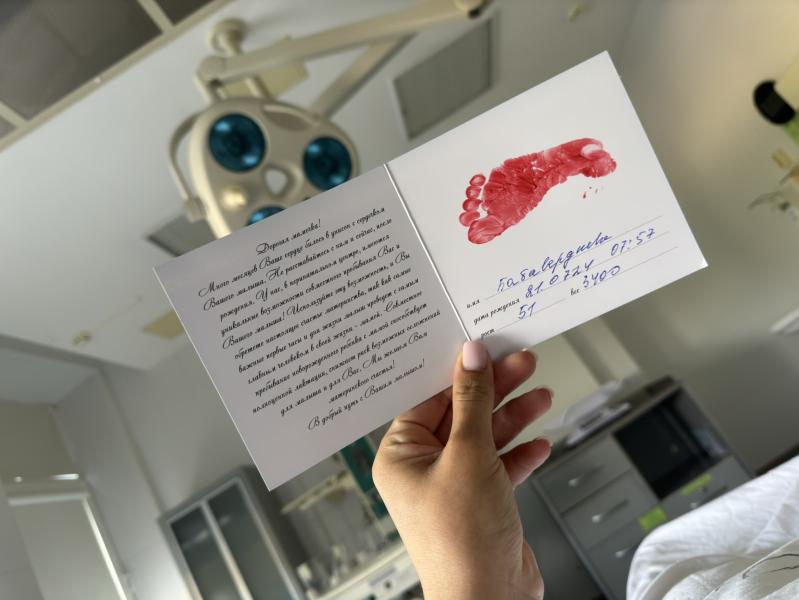 Дорогая мамочка!
Много месяцев Ваше сердце билось в унисон с сердечком
Вашего малыша. Не расставайтесь с ним и сейчас, после
рождения. У нас, в перинатальном центре, имеются
уникальные возможности совместного пребывания Вас и
Вашего малыша! Используйте эту возможность, и Вы
обретете настоящее счастье материнства, так как самые
важные первые часы и дни жизни малыш проведет с самым
главным человеком в своей жизни - мамой. Совместное
пребывание новорожденного ребенка с мамой способствует
полноценной лактации, снижает риск возможных осложнений
для малыша и для Вас. Мы желаем Вам
материнского счастья!
В добрый путь с Вашим малышом!
имя
дата рождения 07:57
рост 51 вес 3400